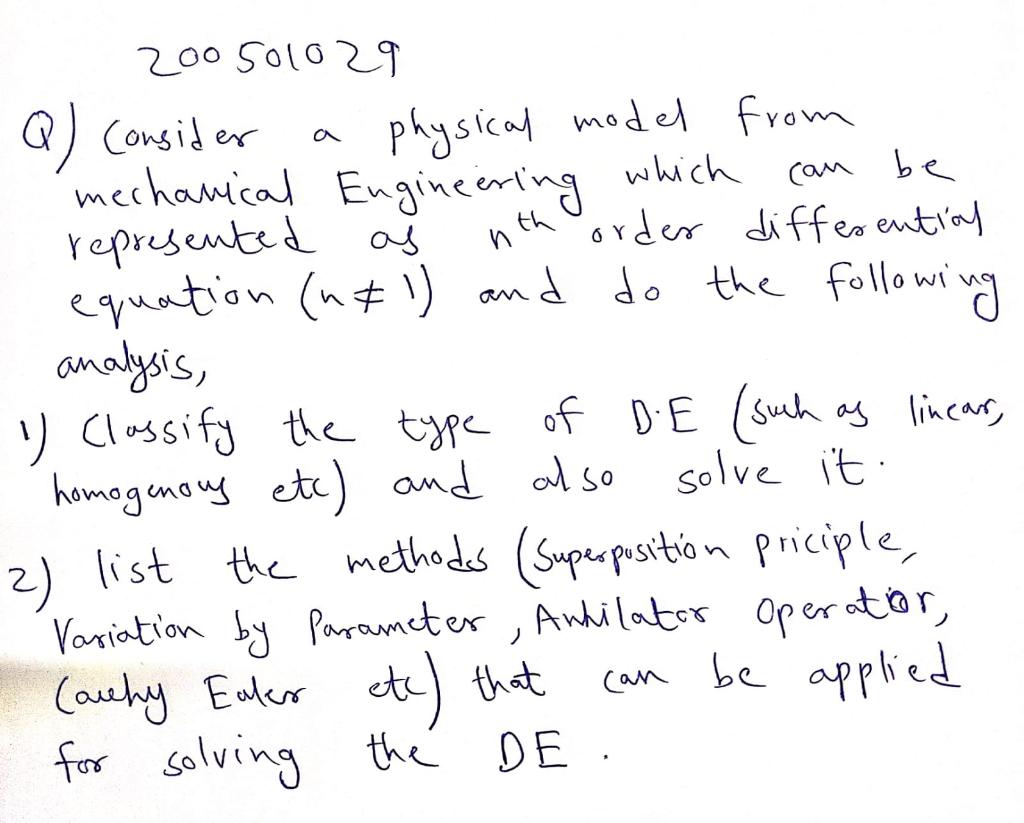 200501029
Q) Consider a physical model from
mechanical Engineering which can be
represented as nth order differential
equation (n ≠ 1) and do the following
analysis,
1) Classify the type of D.E (such as linear,
homogenous etc) and also solve it.
2) list the methods (Superposition priciple,
Variation by Parameter, Anhilator Operator,
Cauchy Euler etc) that can be applied
for solving the DE.